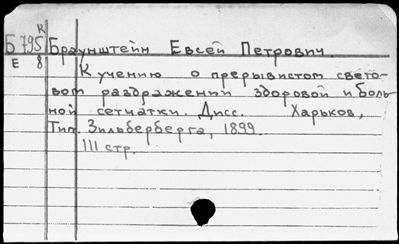 К
Б 795 Браунштейн Евсей Петрович
Е 8
К учению о прерывистом свето-
вом раздражении здоровой и боль-
ной сетчатки. Дисс. Харьков,
Тип. Зильберберга, 1899.
111 стр.